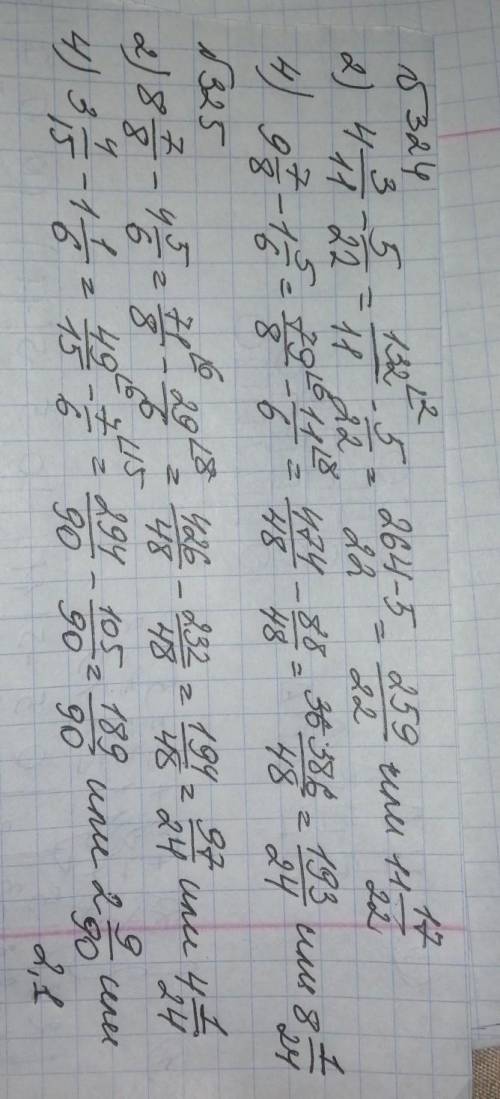 №324
2) 4 3/11 - 5/22 = 132⌊2/11 - 5/22 = 264-5/22 = 259/22 или 11 17/22
4) 9 7/8 - 1 5/6 = 79⌊6/8 - 11⌊8/6 = 474/48 - 88/48 = 386/48 = 193/24 или 8 1/24
№325
2) 8 7/8 - 4 5/6 = 71⌊6/8 - 29⌊8/6 = 426/48 - 232/48 = 194/48 = 97/24 или 4 1/24
4) 3 4/15 - 1 1/6 = 49⌊6/15 - 7⌊15/6 = 294/90 - 105/90 = 189/90 или 2 9/90 или
2,1